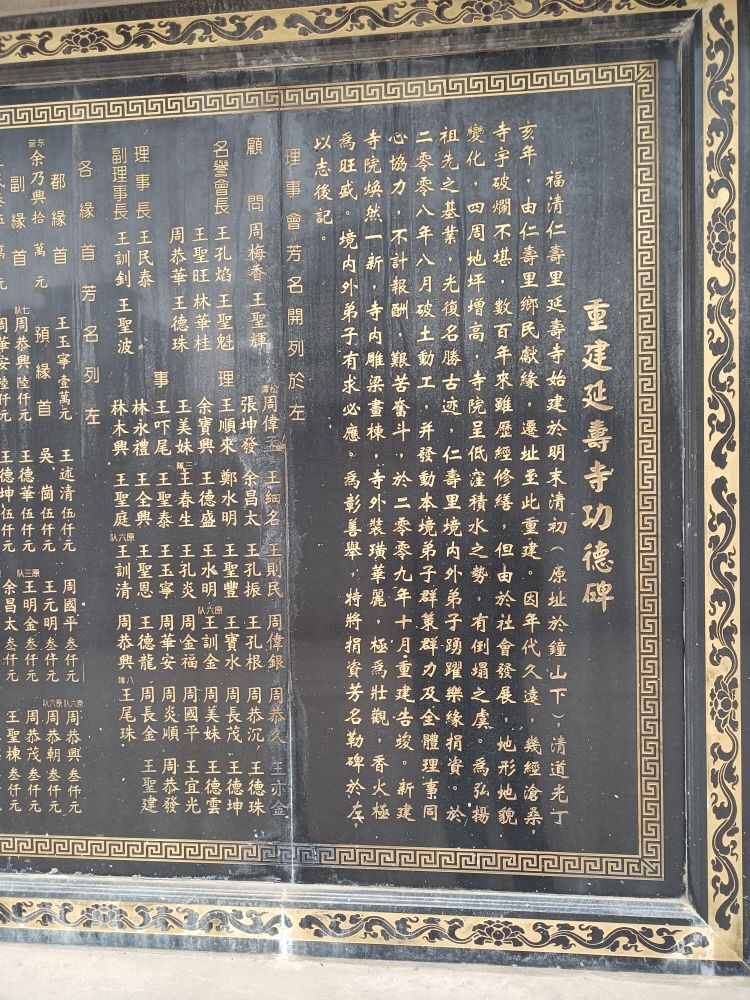 重建延壽寺功德碑
福清仁壽里延壽寺始建於明末清初（原址於鐘山下），清道光丁
亥年，由仁壽里鄉民獻緣，遷址至此重建。因年代久遠，幾經滄桑，
寺宇破爛不堪，數百年來雖歷經修繕，但由於社會發展，地形地貌
變化，四周地坪增高，寺院呈低窪積水之勢，有倒塌之虞。爲弘揚
祖先之基業，光復名勝古迹，仁壽里境内外弟子踴躍樂緣捐資。於
二零零八年八月破土動工，并發動本境弟子群策群力及全體理事同
心協力，不計報酬，艱苦奮斗，於二零零九年十月重建告竣。新建
寺院煥然一新，寺内雕梁畫棟，寺外裝璜華麗，極爲壯觀，香火極
爲旺盛。境内外弟子有求必應。爲彰善舉，特將捐資芳名勒碑於左，
以志後記。
理事會芳名開列於左
顧問 周梅香 王聖輝
名譽會長 王孔焰 王聖魁
王聖旺 林華桂
周恭華 王德珠
理事長 王民泰
副理事長 王訓釗 王聖波
理事
松潭 周偉孟 王細名 王則民 周偉銀 周恭久 王亦金
張坤發 余昌太 王孔振 王孔根 周恭沉 王德珠
王順來 鄭水明 王聖豐 王寶水 周長茂 王德坤
余寶興 王德盛 王水明 原六队 王訓金 周美妹 王德雲
王美妹 三隊 王春生 王孔炎 周金福 周國平 王宜光
王吓尾 王聖泰 王玉寧 周華安 周炎順 周恭發
林永禮 王全興 王聖恩 王德龍 周長金 王聖建
林木興 王聖庭 原六队 王訓清 周恭興 八隊 王尾珠
各緣首芳名列左
都緣首 王玉寧壹萬元 王述清伍仟元 周國平叁仟元 周恭興叁仟元
东营 余乃興拾萬元 預緣首 吳崗伍仟元 王元明叁仟元 原六队 周恭朝叁仟元
副緣首 七队 周恭興陸仟元 王德華伍仟元 原三队 王明金叁仟元 原六队 周恭茂叁仟元
伍萬元 周華安陸仟元 王德坤伍仟元 余昌太叁仟元 王聖棟叁仟元